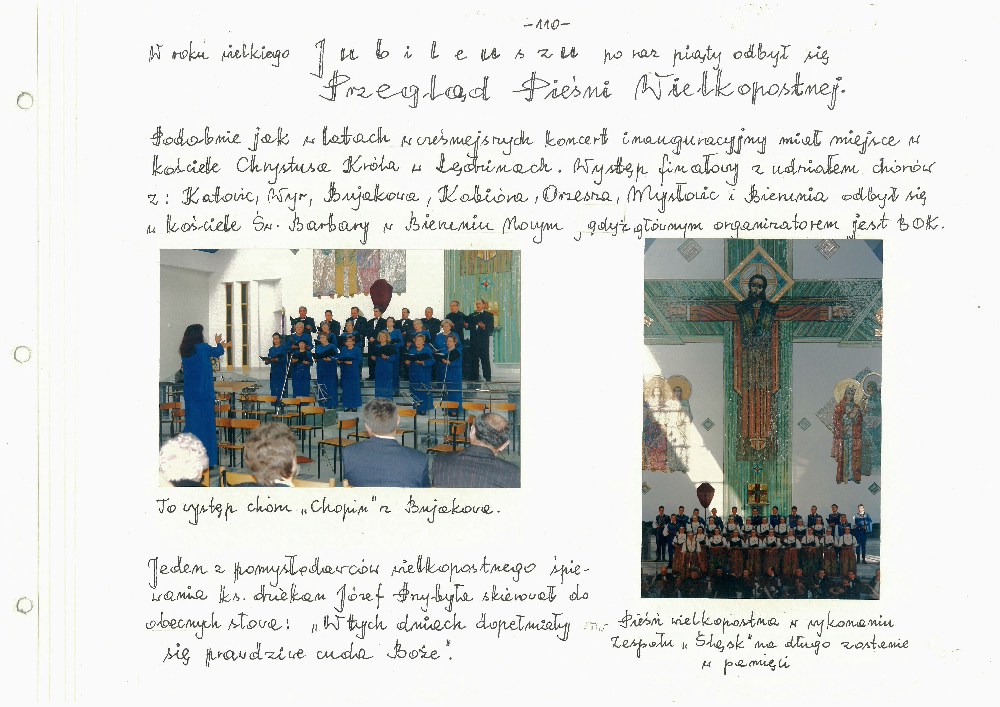 -110-
W roku wielkiego Jubileuszu po raz piąty odbył się
Przegląd Pieśni Wielkopostnej.
Podobnie jak w latach wcześniejszych koncert inauguracyjny miał miejsce w
kościele Chrystusa Króla w Lędzinach. Występ finałowy z udziałem chórów
z: Katowic, Wyr, Bujakowa, Kobióra, Orzesza, Mysłowic i Bierunia odbył się
w kościele Św. Barbary w Bieruniu Nowym, gdyż głównym organizatorem jest BOK.
To występ chóru „Chopin" z Bujakowa.
Jeden z pomysłodawców wielkopostnego śpie-
wania ks. dziekan Józef Przybyła skierował do
obecnych słowa: „W tych dniach dopełniały
się prawdziwe cuda Boże".
Pieśń wielkopostna w wykonaniu
Zespołu „Śląsk" na długo zostanie
w pamięci